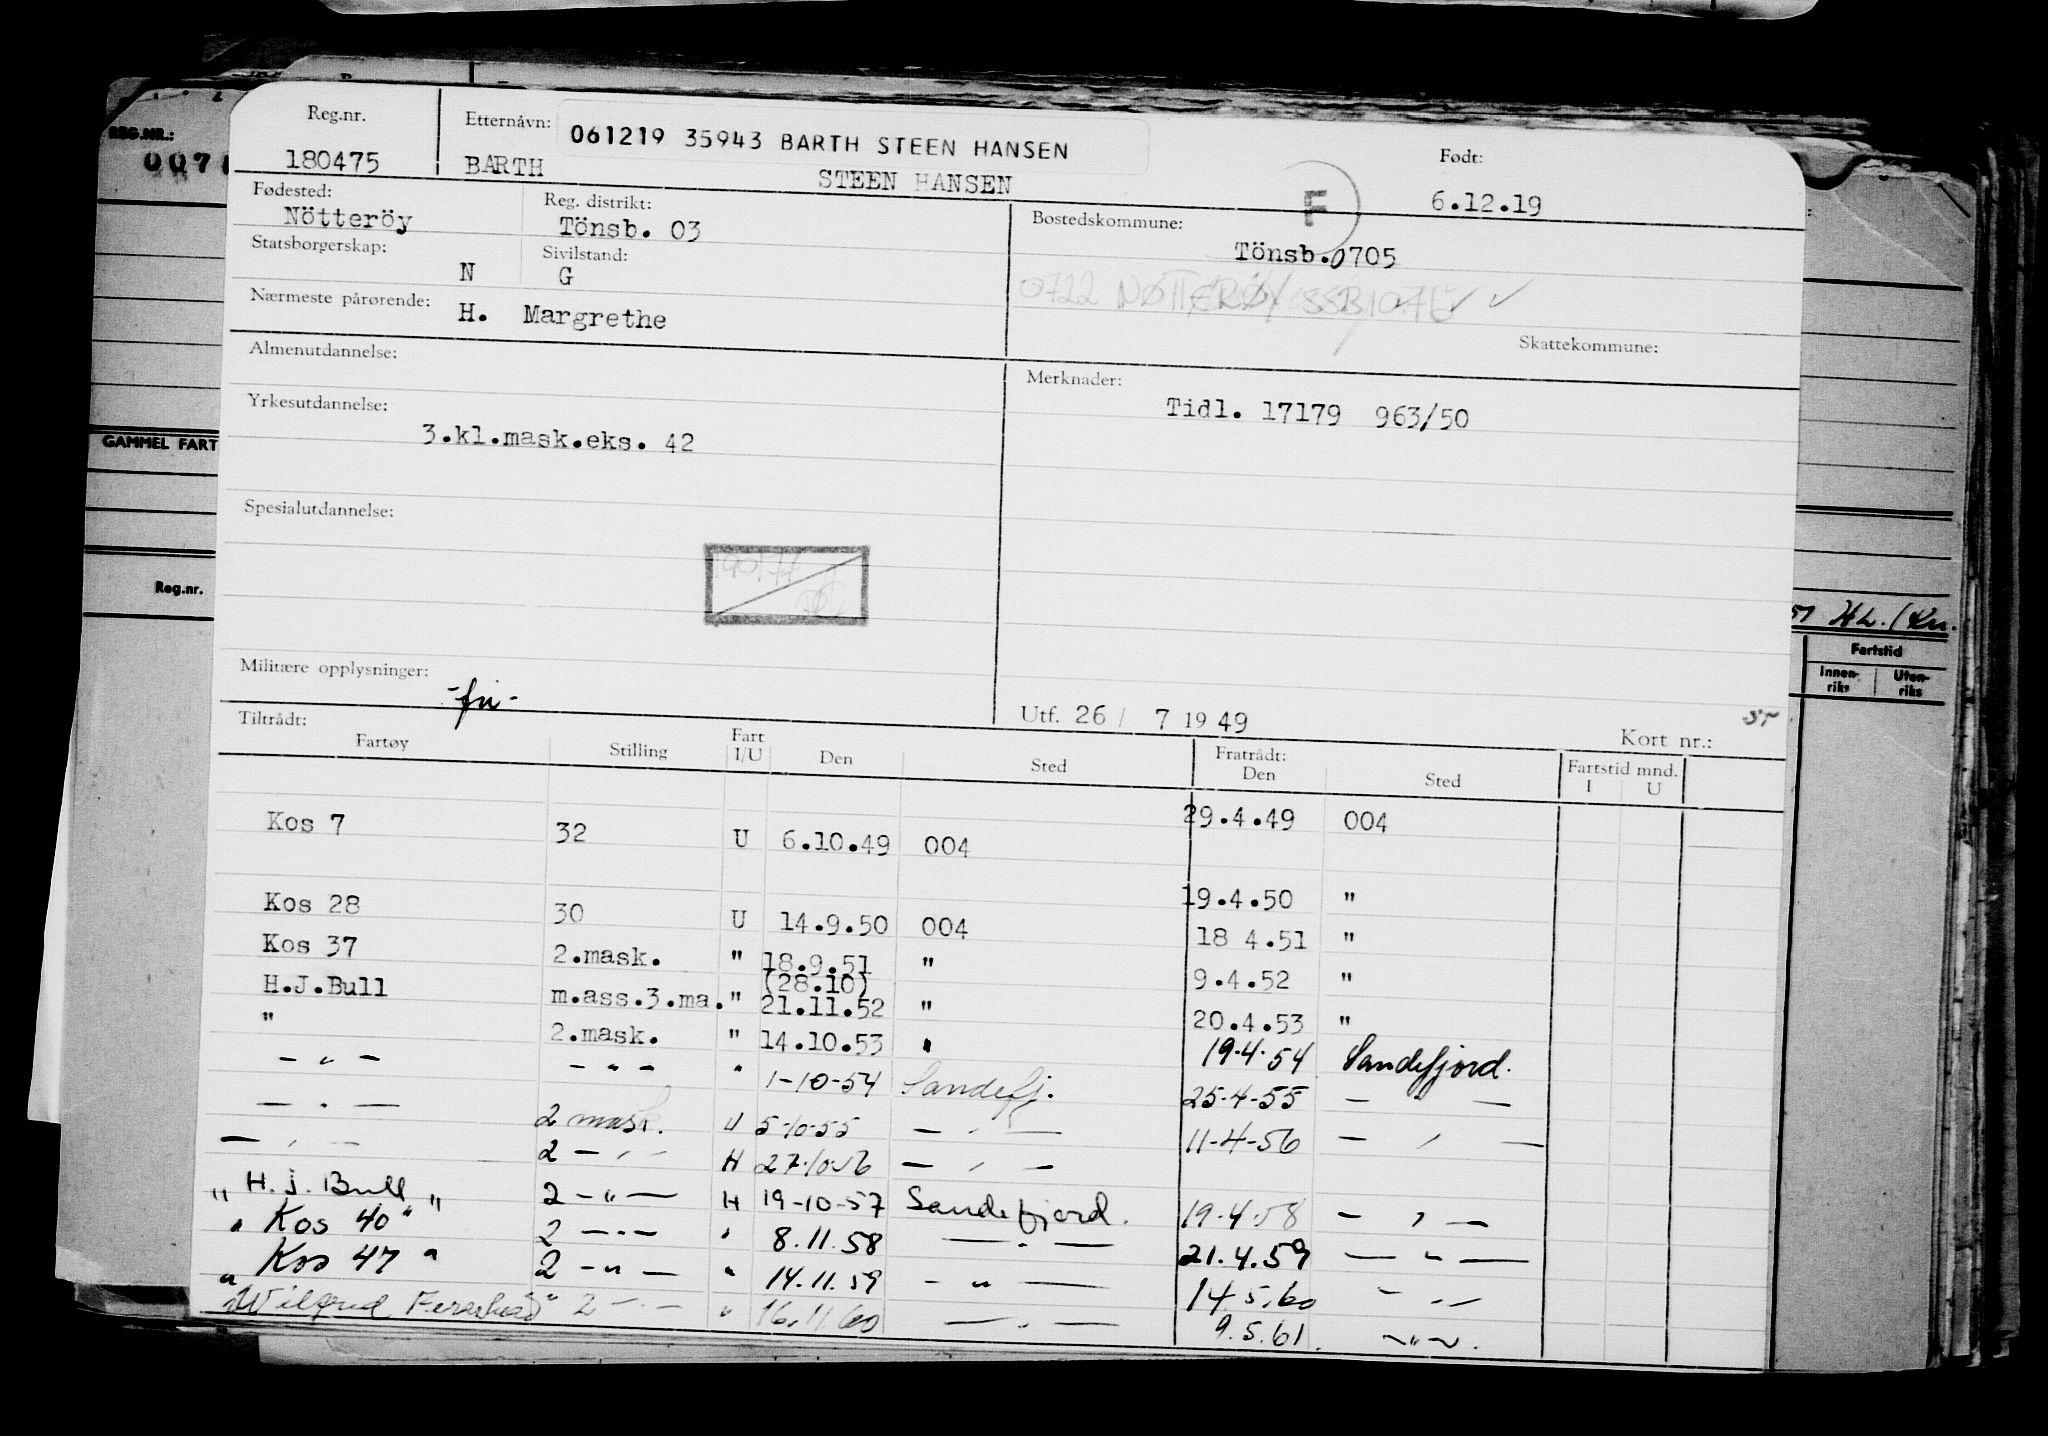 REG.NR.:
007
GAMMEL FART
Reg.nr.
Reg.nr.
180475
Etternåvn:
061219 35943 BARTH STEEN HANSEN
BARTH STEEN HANSEN
Født:
6.12.19
F
Fødested:
Nötteröy
Reg. distrikt:
Tönsb. 03
Bostedskommune:
Tönsb.0705
0722 NØTTERØY
Statsborgerskap:
N
Sivilstand:
G
Nærmeste pårørende:
H. Margrethe
Skattekommune:
Almenutdannelse:
Merknader:
Tidl. 17179 963/50
Yrkesutdannelse:
3.kl.mask.eks. 42
Spesialutdannelse:
Militære opplysninger:
Utf. 26/ 7 19 49
Kort nr.:
Fartstid
Innen-riks Uten-riks
Tiltrådt: Fratrådt:
Fartøy Stilling Fart I/U Den Sted Den Sted Fartstid mnd. I U
29.4.49 004
Kos 7 32 U 6.10.49 004
19.4.50 "
Kos 28 30 U 14.9.50 004 18 4.51 "
Kos 37 2.mask. " 18.9.51 " 9.4.52 "
(28.10)
H.J.Bull m.ass.3.ma. " 21.11.52 " 20.4.53 "
" 2.mask. " 14.10.53 " 19.4.54 Sandefjord.
— " — — " — " 1-10-54 Sandefj. 25-4-55 — " —
— " — 2 mask. U 5-10-55 — " — 11-4-56 — " —
— " — 2 — " — H 27-10-56 — " —
"H. J. Bull" 2 — " — H 19-10-57 Sandefjord. 19-4-58 — " —
"Kos 40" 2 — " — " 8.11.58 — " — 21.4.59 — " —
"Kos 47" 2 — " — " 14.11.59 — " — 14.5.60 — " —
"Wilfred Fearnhead" 2 — " — " 16.11.60 — " — 9.5.61. — " —.